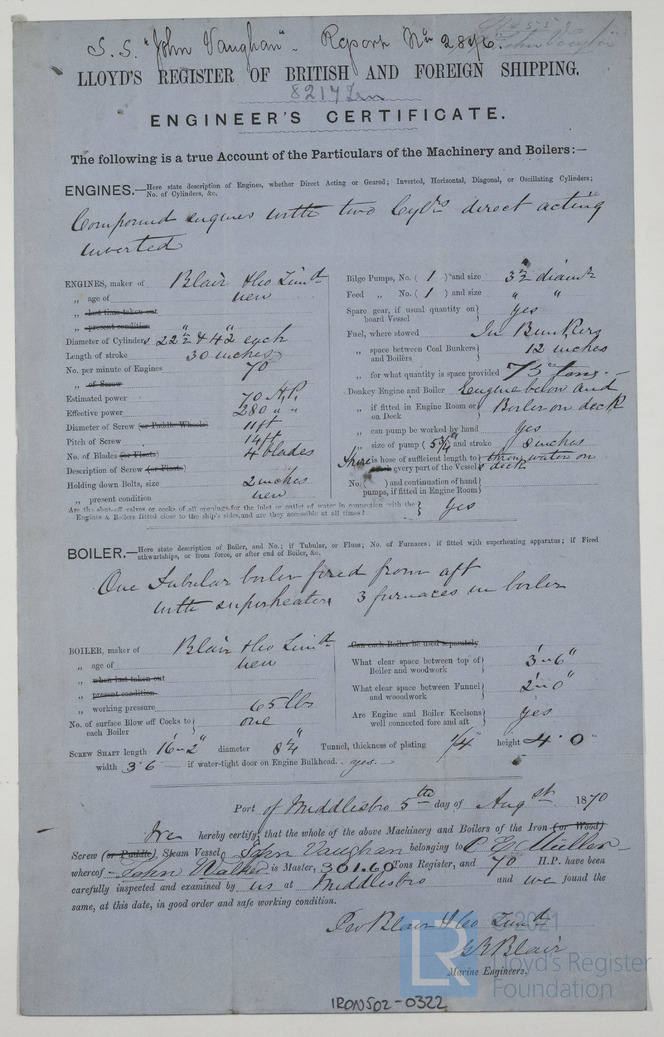 S.S. "John Vaughan". Report No 2846.
LLOYD'S REGISTER OF BRITISH AND FOREIGN SHIPPING.
8217 Iron
ENGINEER'S CERTIFICATE.
The following is a true Account of the Particulars of the Machinery and Boilers:—
ENGINES.—Here state description of Engines, whether Direct Acting or Geared; Inverted, Horizontal, Diagonal, or Oscillating Cylinders;
No. of Cylinders, &c.
Compound engines with two Cylrs direct acting
inverted
ENGINES, maker of Blair & Co Limtd
„ age of new
„ last time taken out
„ present condition
Diameter of Cylinders 22½" & 42" each
Length of stroke 30 inches
No. per minute of Engines 70
„ of Screw
Estimated power 70 H.P.
Effective power 280 " "
Diameter of Screw (or Paddle Wheels) 11 ft
Pitch of Screw 14 ft
No. of Blades (or Floats) 4 blades
Description of Screw (or Float)
Holding down Bolts, size 2 inches
„ present condition new
Bilge Pumps, No. ( 1 ) and size 3½" diamtr
Feed „ No. ( 1 ) and size " "
Spare gear, if usual quantity on board Vessel } yes
Fuel, where stowed In Bunkers
„ space between Coal Bunkers and Boilers } 12 inches
„ for what quantity is space provided 75 tons.
Donkey Engine and Boiler Engine below and
„ if fitted in Engine Room or on Deck } Boiler on deck
„ can pump be worked by hand yes
„ size of pump ( 5¼" ) and stroke 8 inches
There is hose of sufficient length to throw water on
every part of the Vessel's deck
No. ( ) and continuation of hand pumps, if fitted in Engine Room }
Are the shut-off valves or cocks of all openings for the inlet or outlet of water in connection with the
Engines & Boilers fitted close to the ship's sides, and are they accessible at all times? } yes
BOILER.—Here state description of Boiler, and No.; if Tubular, or Flues; No. of Furnaces; if fitted with superheating apparatus; if Fired
athwartships, or from force, or after end of Boiler, &c.
One Tubular boiler fired from aft
with superheater 3 furnaces in boiler
BOILER, maker of Blair & Co Limtd
„ age of new
„ when last taken out
„ present condition
„ working pressure 65 lbs
No. of surface Blow off Cocks to each Boiler } one
Can each Boiler be used separately
What clear space between top of Boiler and woodwork } 3'–6"
What clear space between Funnel and woodwork } 2'–0"
Are Engine and Boiler Keelsons well connected fore and aft } yes
SCREW SHAFT length 16'–2" diameter 8¼ Tunnel, thickness of plating ¼" height 4'0"
width 3'6 — if water-tight door on Engine Bulkhead. yes.
Port of Middlesbro 5th day of Augst 1870
We hereby certify, that the whole of the above Machinery and Boilers of the Iron (or Wood)
Screw (or Paddle), Steam Vessel John Vaughan belonging to
whereof John Walker is Master, 301.60 Tons Register, and 70 H.P. have been
carefully inspected and examined by us at Middlesbro and we found the
same, at this date, in good order and safe working condition.
Pro Blair & Co Limtd
G Blair
Marine Engineers.
© 2021
LR Lloyd's Register
Foundation
IRON502-0322